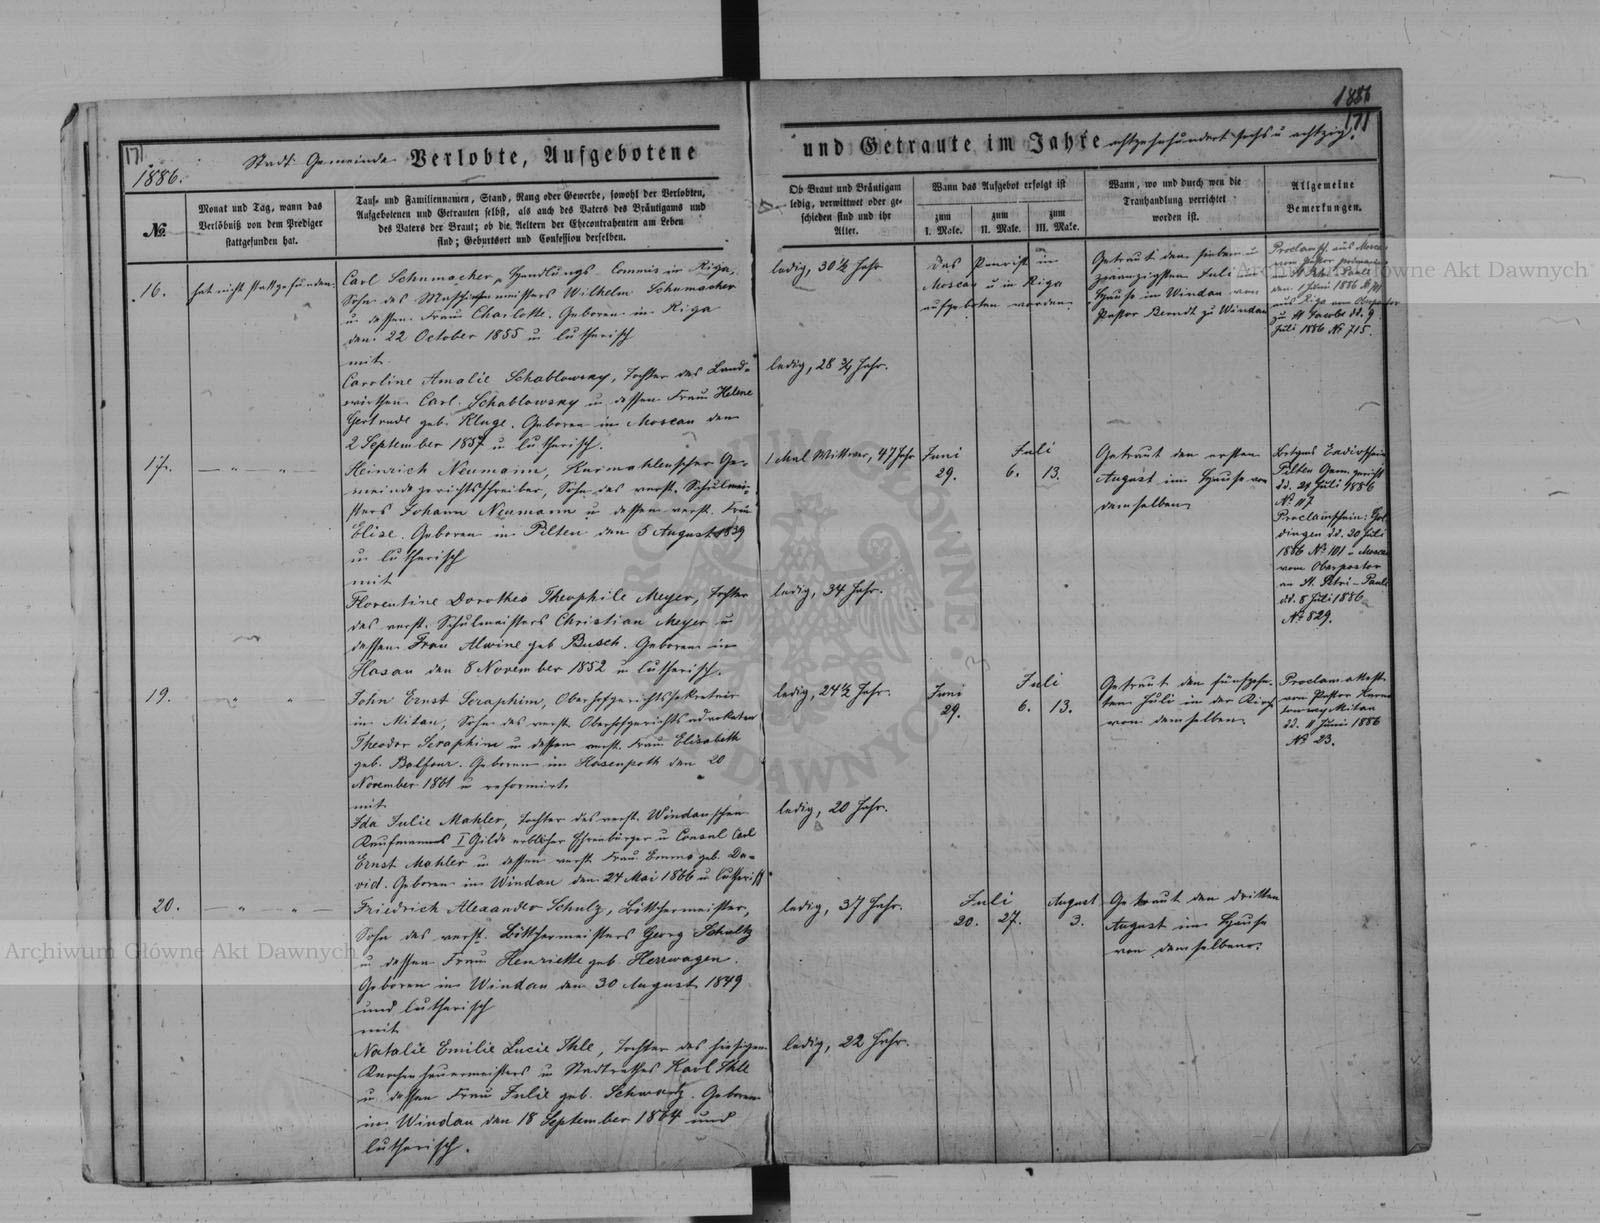 1886
171
171
1886.
Stadt Gemeinde Verlobte, Aufgebotene
und Getraute im Jahre achtzehnhundert sechs u achtzig.
№
Monat und Tag, wann das
Verlöbniß von dem Prediger
stattgefunden hat.
Tauf- und Familiennamen, Stand, Rang oder Gewerbe, sowohl der Verlobten,
Aufgebotenen und Getrauten selbst, als auch des Vaters des Bräutigams und
des Vaters der Braut; ob die Aeltern der Ehecontrahenten am Leben
sind; Geburtsort und Confession derselben.
Ob Braut und Bräutigam
ledig, verwittwet oder ge-
schieden sind und ihr
Alter.
Wann das Aufgebot erfolgt ist
zum
I. Male.
zum
II. Male.
zum
III. Male.
Wann, wo und durch wen die
Trauhandlung verrichtet
worden ist.
Allgemeine
Bemerkungen.
16.
hat nicht stattgefunden
Carl Schumacher, Handlungs-Commis in Riga,
Sohn des Maschinenmeisters Wilhelm Schumacher
u dessen Frau Charlotte. Geboren in Riga
den 22 October 1855 u lutherisch
mit
Caroline Amalie Schablowsky, Tochter des Land-
wirthen Carl Schablowsky u dessen Frau Helene
Gertrude geb. Kluge. Geboren in Moscau den
2 September 1857 u lutherisch.
ledig, 30½ Jahr
ledig, 28¾ Jahr.
Das Paar ist in
Moscau u in Riga
aufgeboten worden
Getraut den sieben u
zwanzigsten Juli im
Hause in Windau von
Pastor Berndt zu Windau
Proclamsch. aus Moscau
vom Pastor
St. Petri Pauli
den 1 Juni 1886 №
aus Riga vom Oberpastor
zu St Jacobi dd. 9
Juli 1886 № 715.
17.
— „ — „ —
Heinrich Neumann, Kurmahlenscher Ge-
meindegerichtsschreiber, Sohn des verst. Schulmei-
sters Johann Neumann u dessen verst. Frau
Elise. Geboren in Pilten den 5 August 1839
u lutherisch
mit
Florentine Dorothea Theophile Meyer, Tochter
des verst. Schulmeisters Christian Meyer u
dessen Frau Alwine geb Busch. Geboren in
Hasau den 8 November 1852 u lutherisch.
1 Mal Wittwer, 47 Jahr
ledig, 34 Jahr.
Juni
29.
Juli
6. 13.
Getraut den ersten
August im Hause von
demselben
Pilten Gem. gericht
dd. 29 Juli 1886
№ 117
Proclamschein: Gol-
dingen dd. 20 Juli
1886 № 101 u Moscau
vom Oberpastor
an St. Petri-Pauli
dd. 8 Juli 1886
№ 829.
19.
„ „
John Ernst Seraphim, Oberhofgerichtssekretair
in Mitau, Sohn des verst Oberhofgerichtsadvokaten
Theodor Seraphim u dessen verst. Frau Elisabeth
geb. Balfour. Geboren in Hasenpoth den 20
November 1861 u reformirt
mit
Ida Julie Mahler, Tochter des verst. Windauschen
Kaufmanns I Gilde erblicher Ehrenbürger u Consul Carl
Ernst Mahler u dessen verst. Frau Emma geb. Da-
vid. Geboren in Windau den 24 Mai 1866 u lutherisch
ledig, 24½ Jahr.
ledig, 20 Jahr.
Juni
29.
Juli
6. 13.
Getraut den fünfzehn-
ten Juli in der Kirche
von demselben.
Proclam. attest
von Pastor
Mitau
dd. 11 Juni 1886
№ 23.
20.
— „ — „ —
Friedrich Alexander Schulz, Böttchermeister,
Sohn des verst. Böttchermeisters Georg Schultz
u dessen Frau Henriette geb. Herrwagen.
Geboren in Windau den 30 August 1849
und lutherisch
mit
Natalie Emilie Lucie Ihle, Tochter des hiesigen
Knochenhauermeisters u Stadtrathes Karl Ihle
u dessen Frau Julie geb. Schwartz. Geboren
in Windau den 18 September 1864 und
lutherisch.
ledig, 37 Jahr.
ledig, 22 Jahr.
Juli
20. 27.
August
3.
Getraut den dritten
August im Hause
von demselben.
Archiwum Główne Akt Dawnych
Archiwum Główne Akt Dawnych
ARCHIWUM GŁÓWNE AKT DAWNYCH